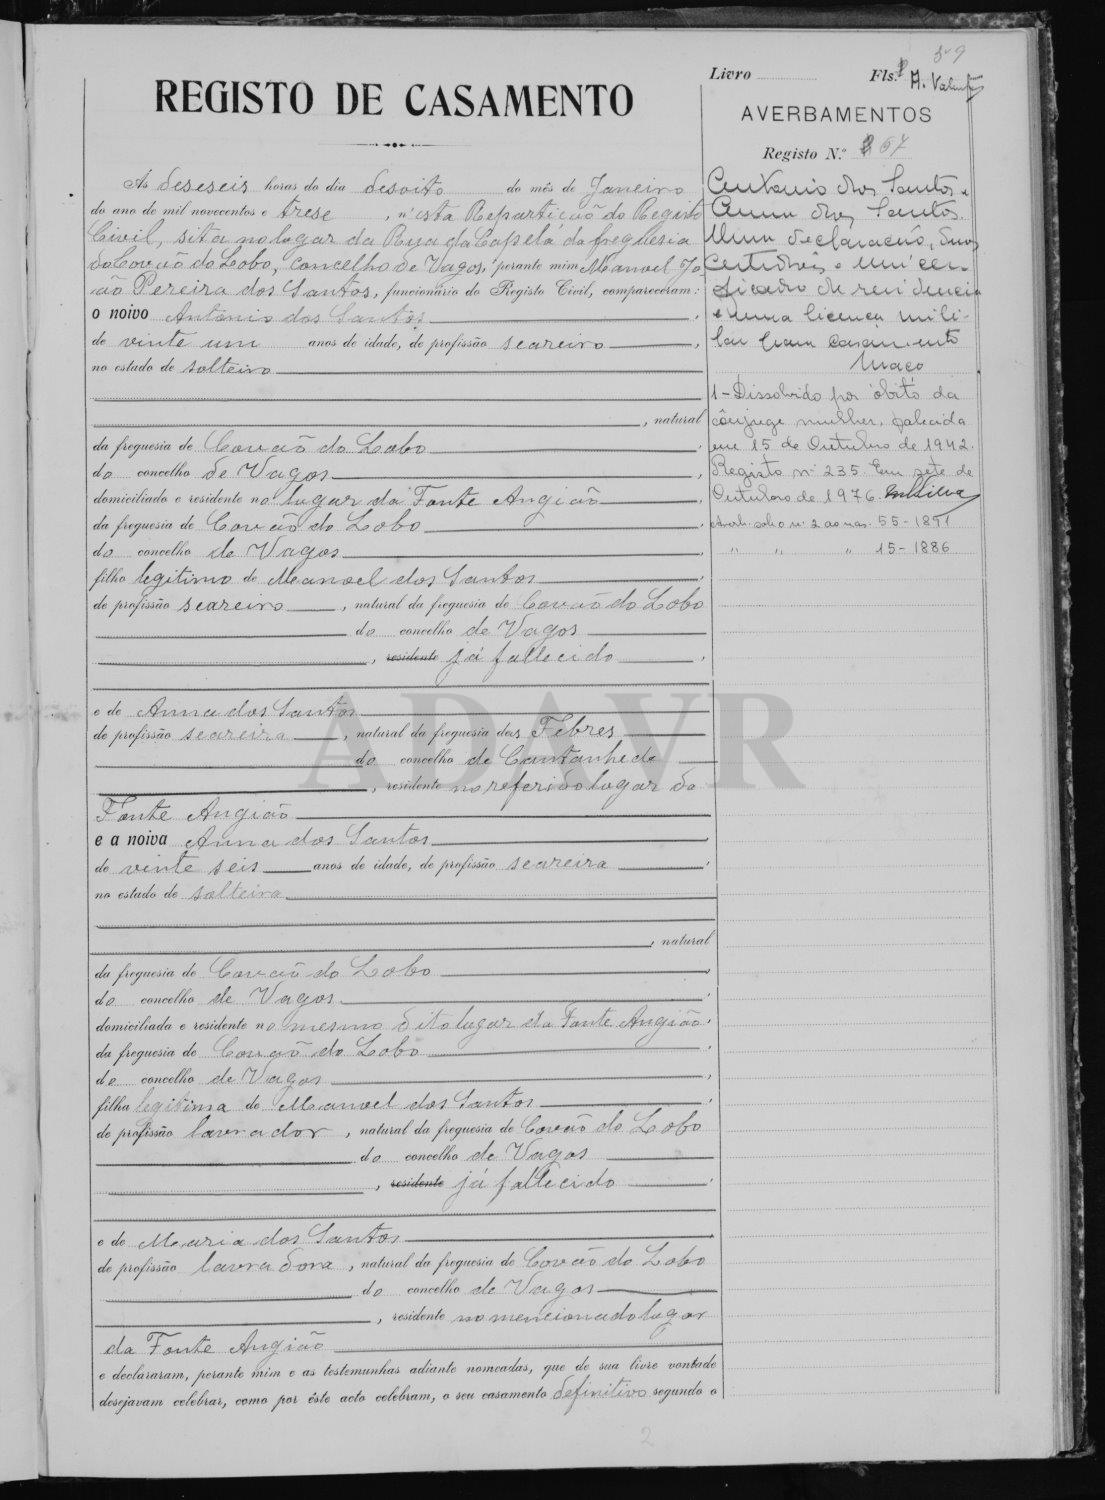 59
Livro Fls. A. Valente
REGISTO DE CASAMENTO
AVERBAMENTOS
Registo N.º 67
Ás deseseis horas do dia desoito do mês de Janeiro
do ano de mil novecentos e trese, n'esta Repartição do Registo
Civil, sita no lugar da Rua da Capela da freguesia
do Covão do Lobo, concelho de Vagos, perante mim Manoel Jo-
ão Pereira dos Santos, funcionário do Registo Civil, compareceram:
o noivo Antonio dos Santos,
de vinte um anos de idade, de profissão seareiro,
no estado de solteiro
, natural
da freguesia de Covão do Lobo,
do concelho de Vagos,
domiciliado e residente no lugar da Fonte Angião,
da freguesia de Covão do Lobo,
do concelho de Vagos,
filho legitimo de Manoel dos Santos,
de profissão seareiro, natural da freguesia de Covão do Lobo
do concelho de Vagos
, residente já fallecido,
e de Anna dos Santos
de profissão seareira, natural da freguesia das Febres
do concelho de Cantanhede
, residente no referido lugar da
Fonte Angião
e a noiva Anna dos Santos
de vinte seis anos de idade, de profissão seareira,
no estado de solteira
, natural
da freguesia de Covão do Lobo,
do concelho de Vagos,
domiciliada e residente no mesmo dito lugar da Fonte Angião,
da freguesia de Covão do Lobo,
do concelho de Vagos,
filha legitima de Manoel dos Santos,
de profissão lavrador, natural da freguesia de Covão do Lobo
do concelho de Vagos
, residente já fallecido,
e de Maria dos Santos
de profissão lavradora, natural da freguesia de Covão do Lobo
do concelho de Vagos
, residente no mencionado lugar
da Fonte Angião
e declararam, perante mim e as testemunhas adiante nomeadas, que de sua livre vontade
desejavam celebrar, como por êste acto celebram, o seu casamento definitivo segundo o
Antonio dos Santos e
Anna dos Santos.
Uma declaração, duas
certidões e um cer-
ficado de residencia
e uma licença mili-
tar para casamento
1-Dissolvido por óbito da
cônjuge mulher, falecida
em 15 de Outubro de 1942.
Registo nº 235. Em sete de
Outubro de 1976. MSilva
Averb. sob o nº 2 ao nas. 55-1891
" " " 15-1886
ADAVR
2